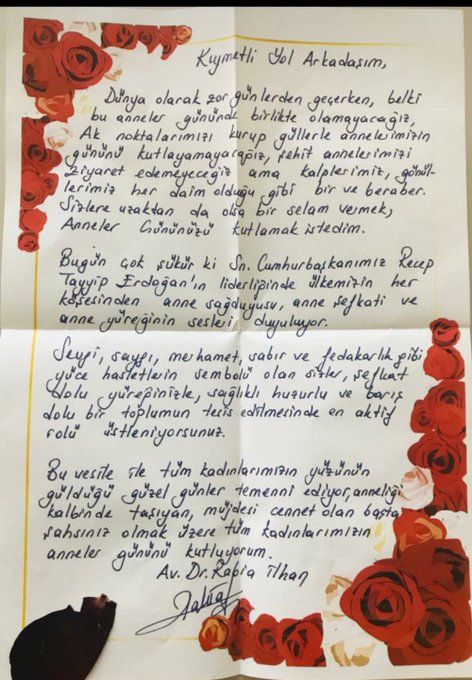 Kıymetli Yol Arkadaşım,
Dünya olarak zor günlerden geçerken, belki
bu anneler gününde birlikte olamayacağız,
Ak noktalarımızı kurup güllerle annelerimizin
gününü kutlayamayacağız, şehit annelerimizi
ziyaret edemeyeceğiz ama kalplerimiz, gönül-
lerimiz her daim olduğu gibi bir ve beraber.
Sizlere uzaktan da olsa bir selam vermek,
Anneler Gününüzü kutlamak istedim.
Bugün çok şükür ki Sn. Cumhurbaşkanımız Recep
Tayyip Erdoğan'ın liderliğinde ülkemizin her
köşesinden anne sağduyusu, anne şefkati ve
anne yüreğinin sesleri duyuluyor.
Sevgi, saygı, merhamet, sabır ve fedakarlık gibi
yüce hasletlerin sembolü olan sizler, şefkat
dolu yüreğinizle, sağlıklı huzurlu ve barış
dolu bir toplumun tesis edilmesinde en aktif
rolü üstleniyorsunuz.
Bu vesile ile tüm kadınlarımızın yüzünün
güldüğü güzel günler temenni ediyor, anneliği
kalbinde taşıyan, müjdesi cennet olan başta
şahsınız olmak üzere tüm kadınlarımızın
anneler gününü kutluyorum.
Av. Dr. Rabia İlhan